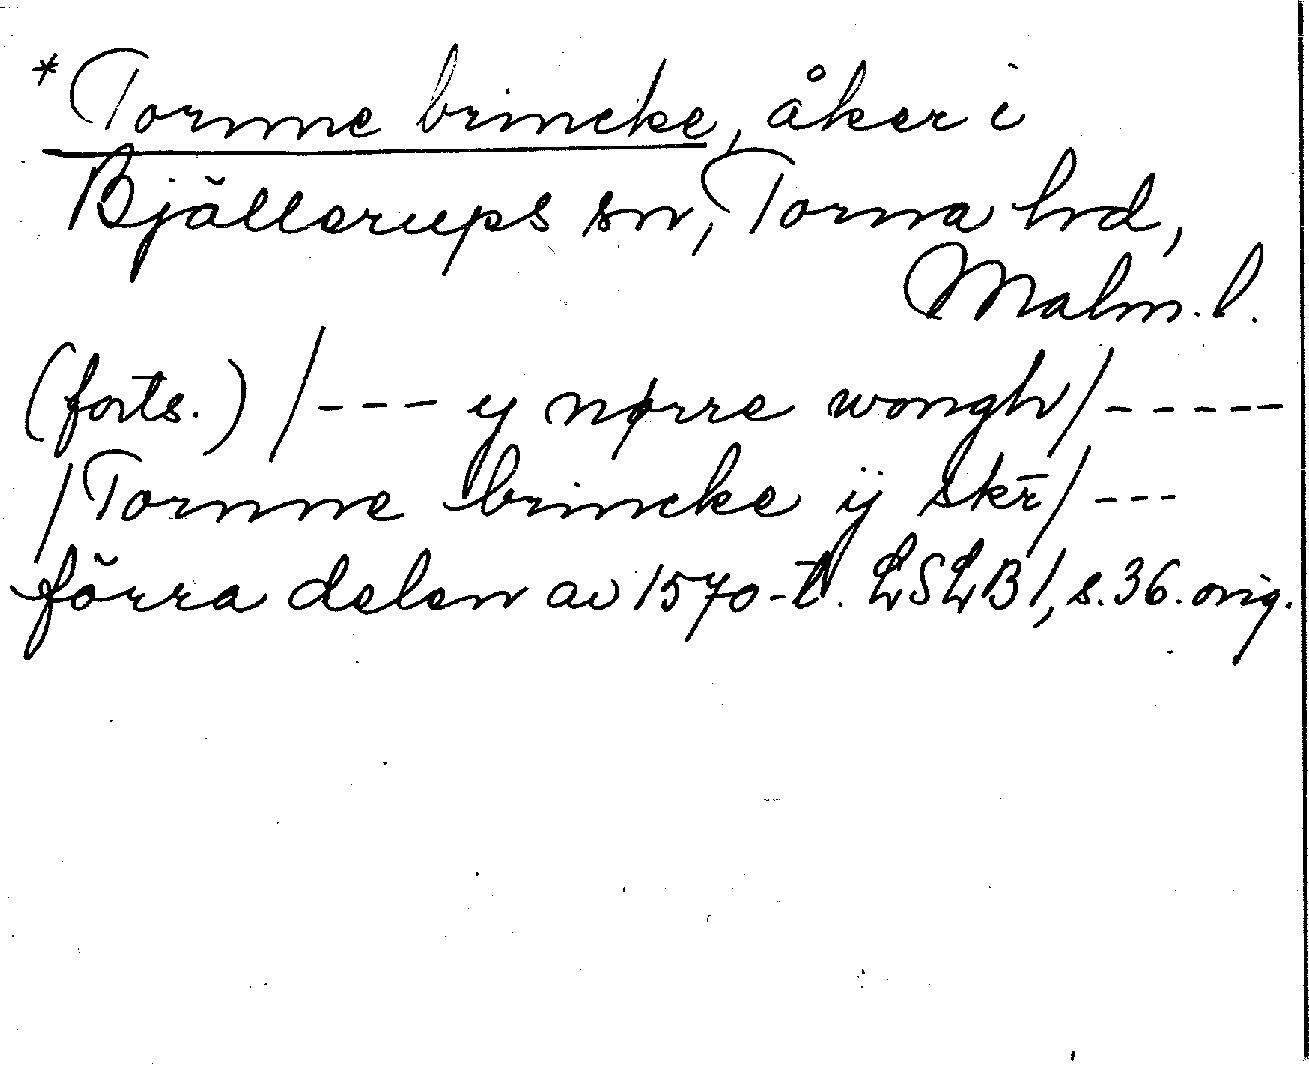 *Tornne brincke, åker i
Bjällerups sn, Torna hd,
Malm. l.
(forts.) /--- y nørre wongh/-----
/Tornne brincke ÿ skr̄/---
förra delen av 1570-t. LSLB 1, s. 36. orig.